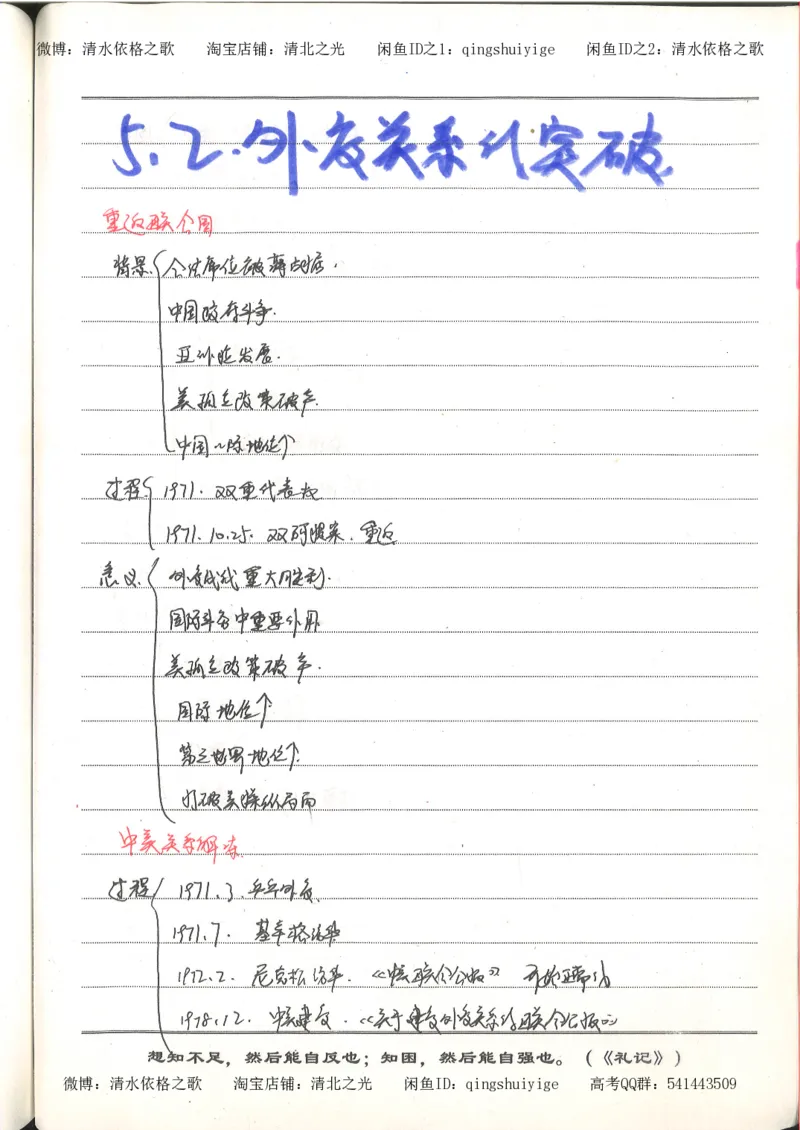 微博：清水依格之歌 淘宝店铺：清北之光 闲鱼ID之1：qingshuiyige 闲鱼ID之2：清水依格之歌
5.2.外交关系的突破
重返联合国
背景 合法席位被蒋占据.
中国政府斗争.
亚非拉发展.
美孤立政策破产.
中国国际地位↑
过程 1971. 双重代表权
1971.10.25. 双阿提案. 重返
意义 外交战线重大胜利.
国际事务中重要作用
美孤立政策破产.
国际地位↑
第三世界地位↑.
打破美操纵局面
中美关系解冻.
过程 1971.3.乒乓外交.
1971.7. 基辛格访华
1972.2. 尼克松访华. 《中美联合公报》 开始正常化
1978.12. 中美建交.《关于建交外交关系的联合公报》
想知不足，然后能自反也；知困，然后能自强也。（《礼记》）
微博：清水依格之歌 淘宝店铺：清北之光 闲鱼ID：qingshuiyige 高考QQ群：541443509